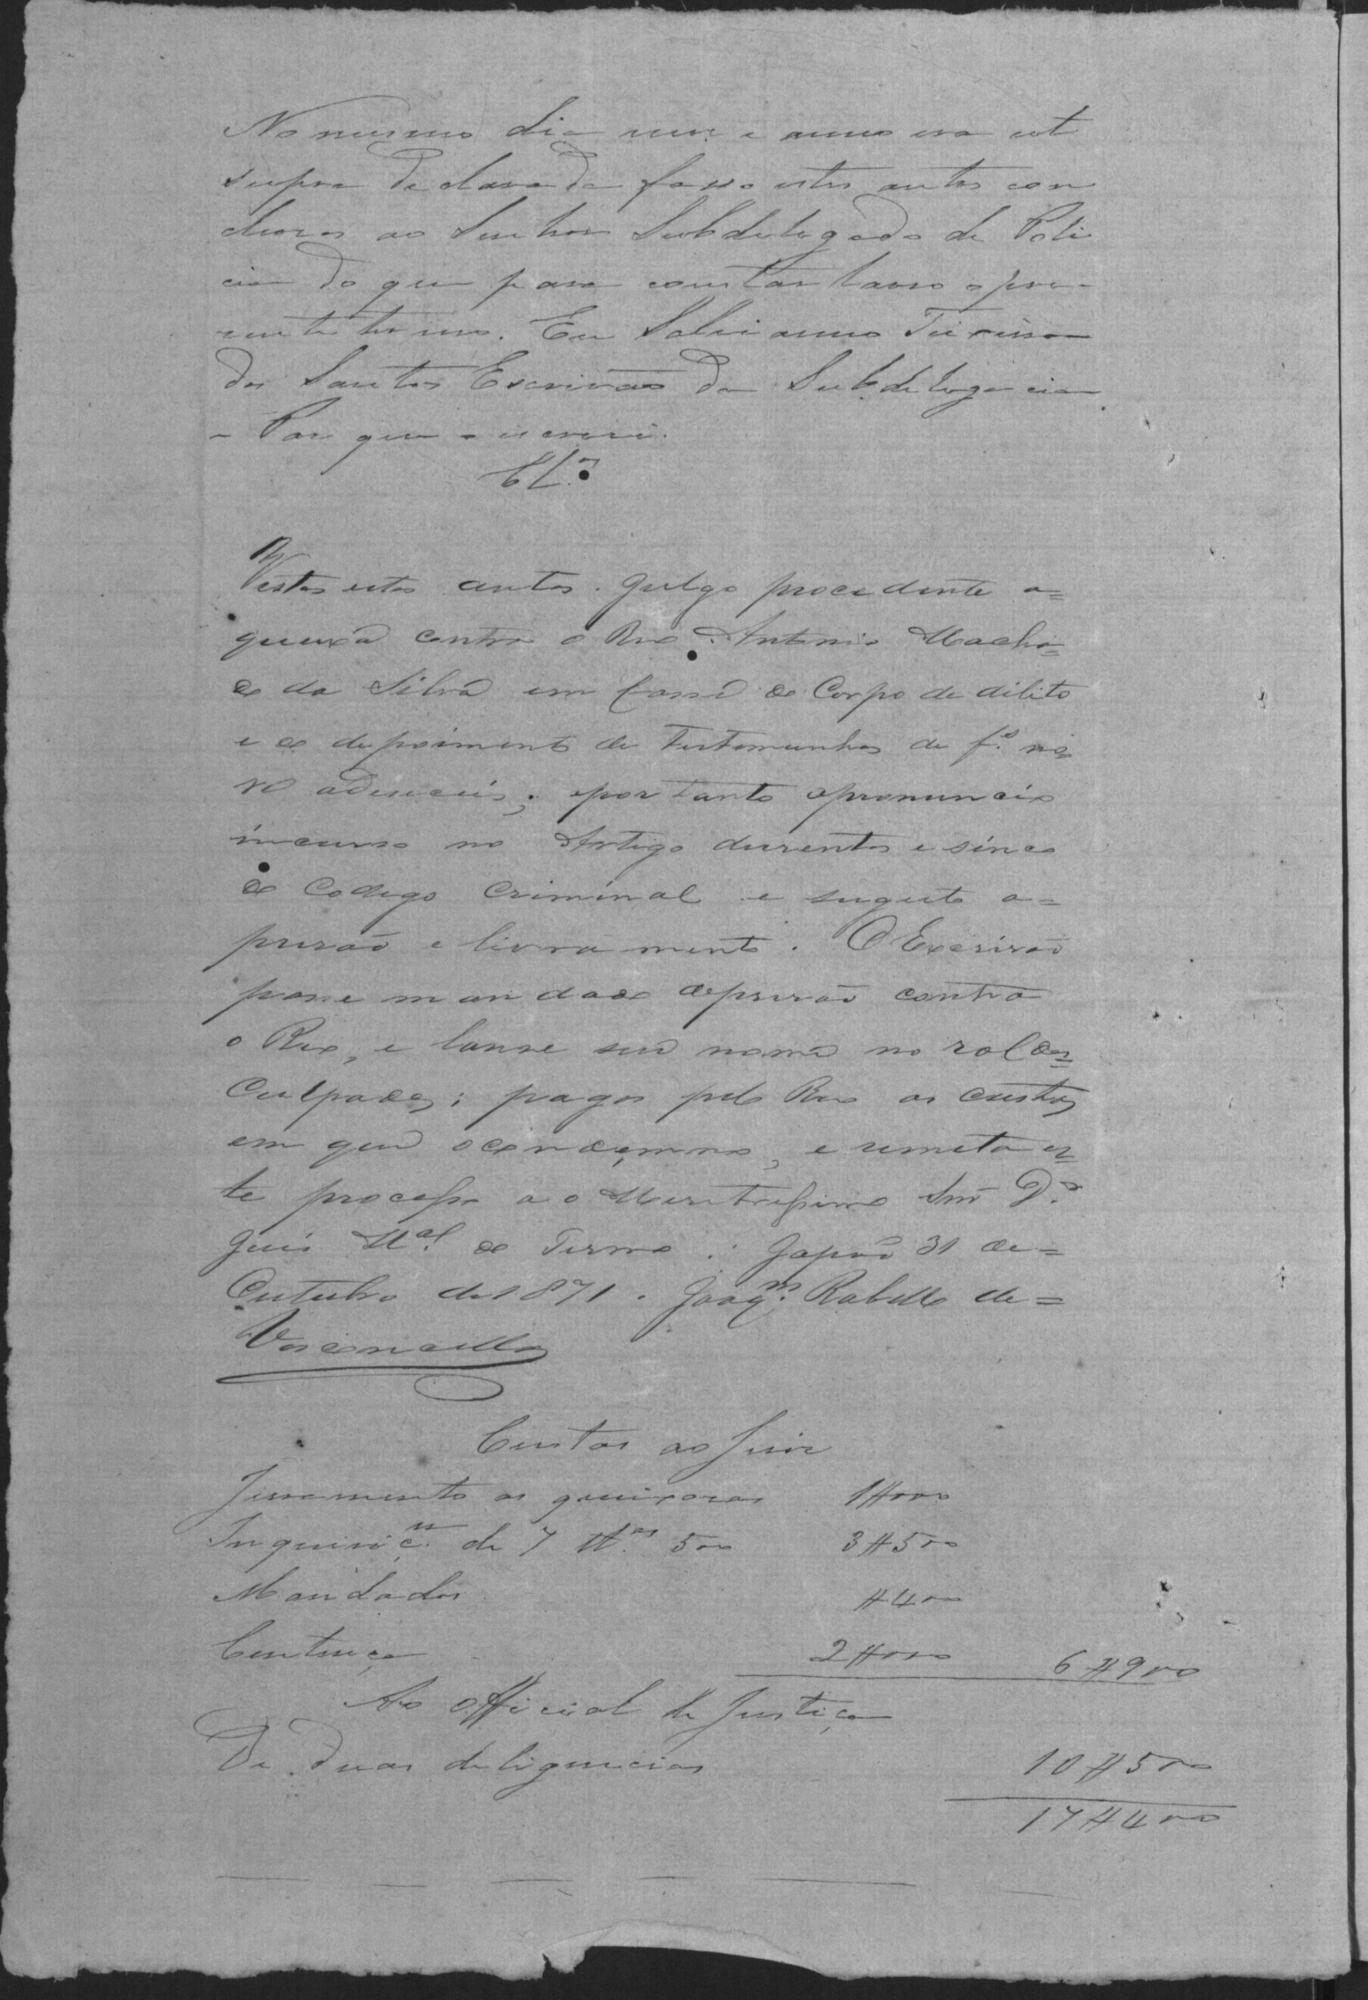 No mesmo dia mes e anno era ut
supra declarada faço estes autos con
clusos ao Senhor Subdelegado de Poli
cia do que para constar lavro o pre-
sente termo. Eu Salvianno Teixeira
dos Santos Escrivão da Subdelegacia
- Par que o escrevi.
Cl.os
Vistos estes autos. Julgo procedente a=
queixa contra o Reo Antonio Macha=
do da Silva em face do Corpo de dilito
e do depoimento de Testemunhas de f.s no=
ve adeseceis; eportanto opronuncio
incurso no Artigo durentos e sinco
do Codego Criminal e sugeito a=
prisão e livramento. O Escrivão
passe mandado deprisão contra
o Reo, e lanse seu nome no rol dos=
Culpados; pagos pelo Reo as custas
em que ocondemno, e remeta es=
te processo ao Meretissimo Snr D.or
Juis M.al do Termo. Japão 31 de=
Outubro de 1871. Joaq.m Rabello de=
Vasconcellos
Custas ao Juiz
Juramento as queixosas 1#000
Inquiriç.m de 7 tt.as 500 3#500
Mandados #400
Centença 2#000 6#900
Ao Official de Justiça
De duas deligencias 10#500
17#400